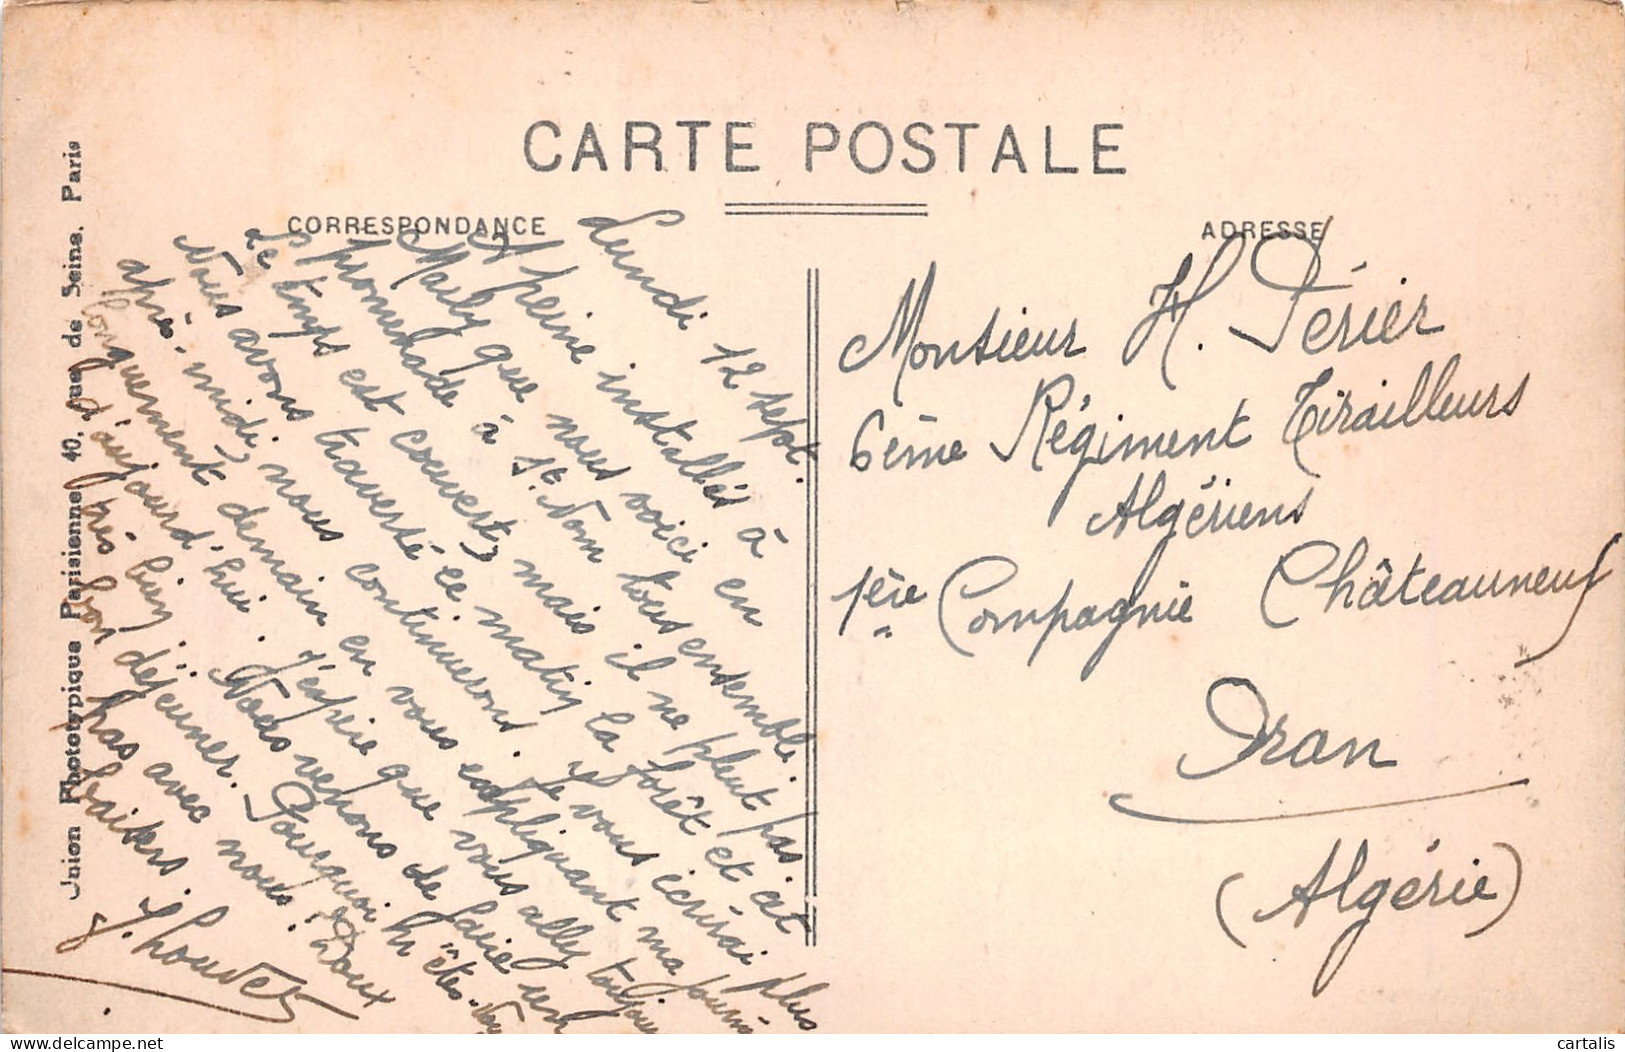 CARTE POSTALE
CORRESPONDANCE
ADRESSE
Union Phototypique Parisienne 40, rue de Seine, Paris
Lundi 12 sept.
A peine installées à
Marly que nous voici en
promenade à St. Nom tous ensemble.
Le temps est couvert, mais il ne pleut pas.
Nous avons traversé ce matin la forêt et cet
après-midi, nous continuerons. Je vous écrirai plus
longuement demain en vous expliquant ma journée
d'aujourd'hui. J'espère que vous allez toujours
très bien. Nous venons de faire un
bon déjeuner. Pourquoi n'êtes-vous
pas avec nous? Doux
baisers.
Monsieur H. Périer
6ème Régiment Tirailleurs
Algériens
1ère Compagnie Châteauneuf
Oran
(Algérie)
cartalis
www.delcampe.net